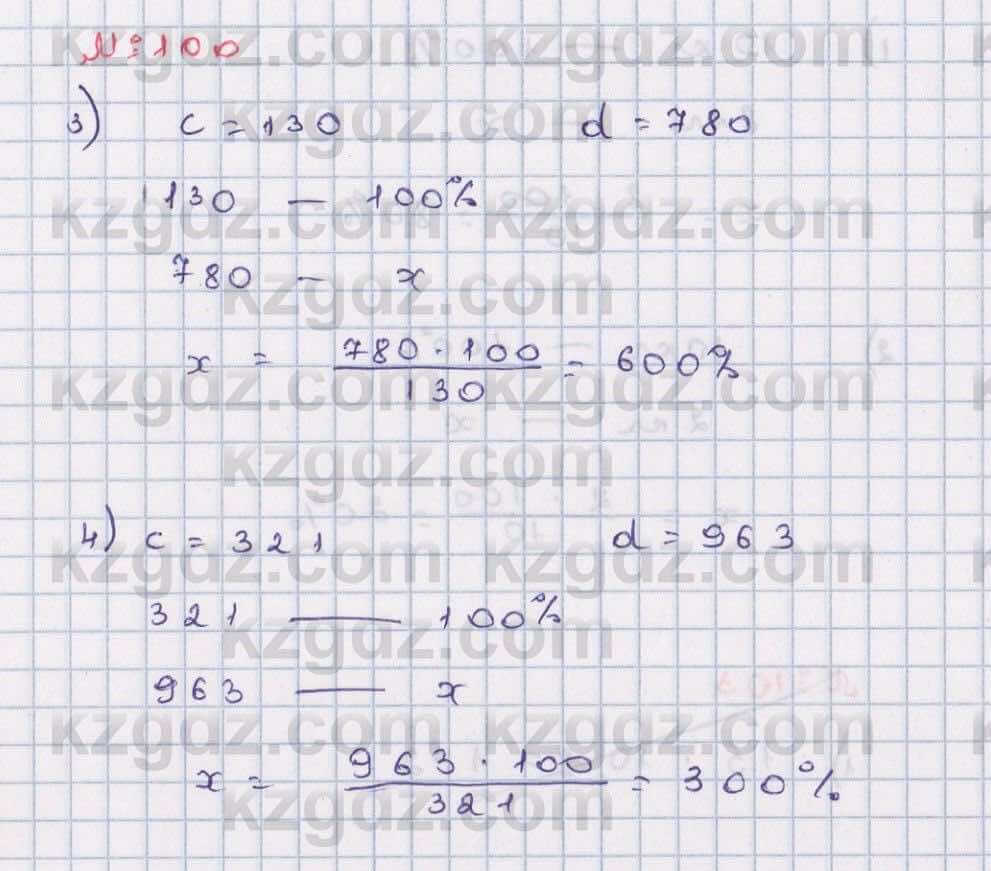 №100
3) c = 130 d = 780
130 — 100%
780 — x
x = 780 · 100 / 130 = 600%
4) c = 321 d = 963
321 — 100%
963 — x
x = 963 · 100 / 321 = 300%
kzgdz.com